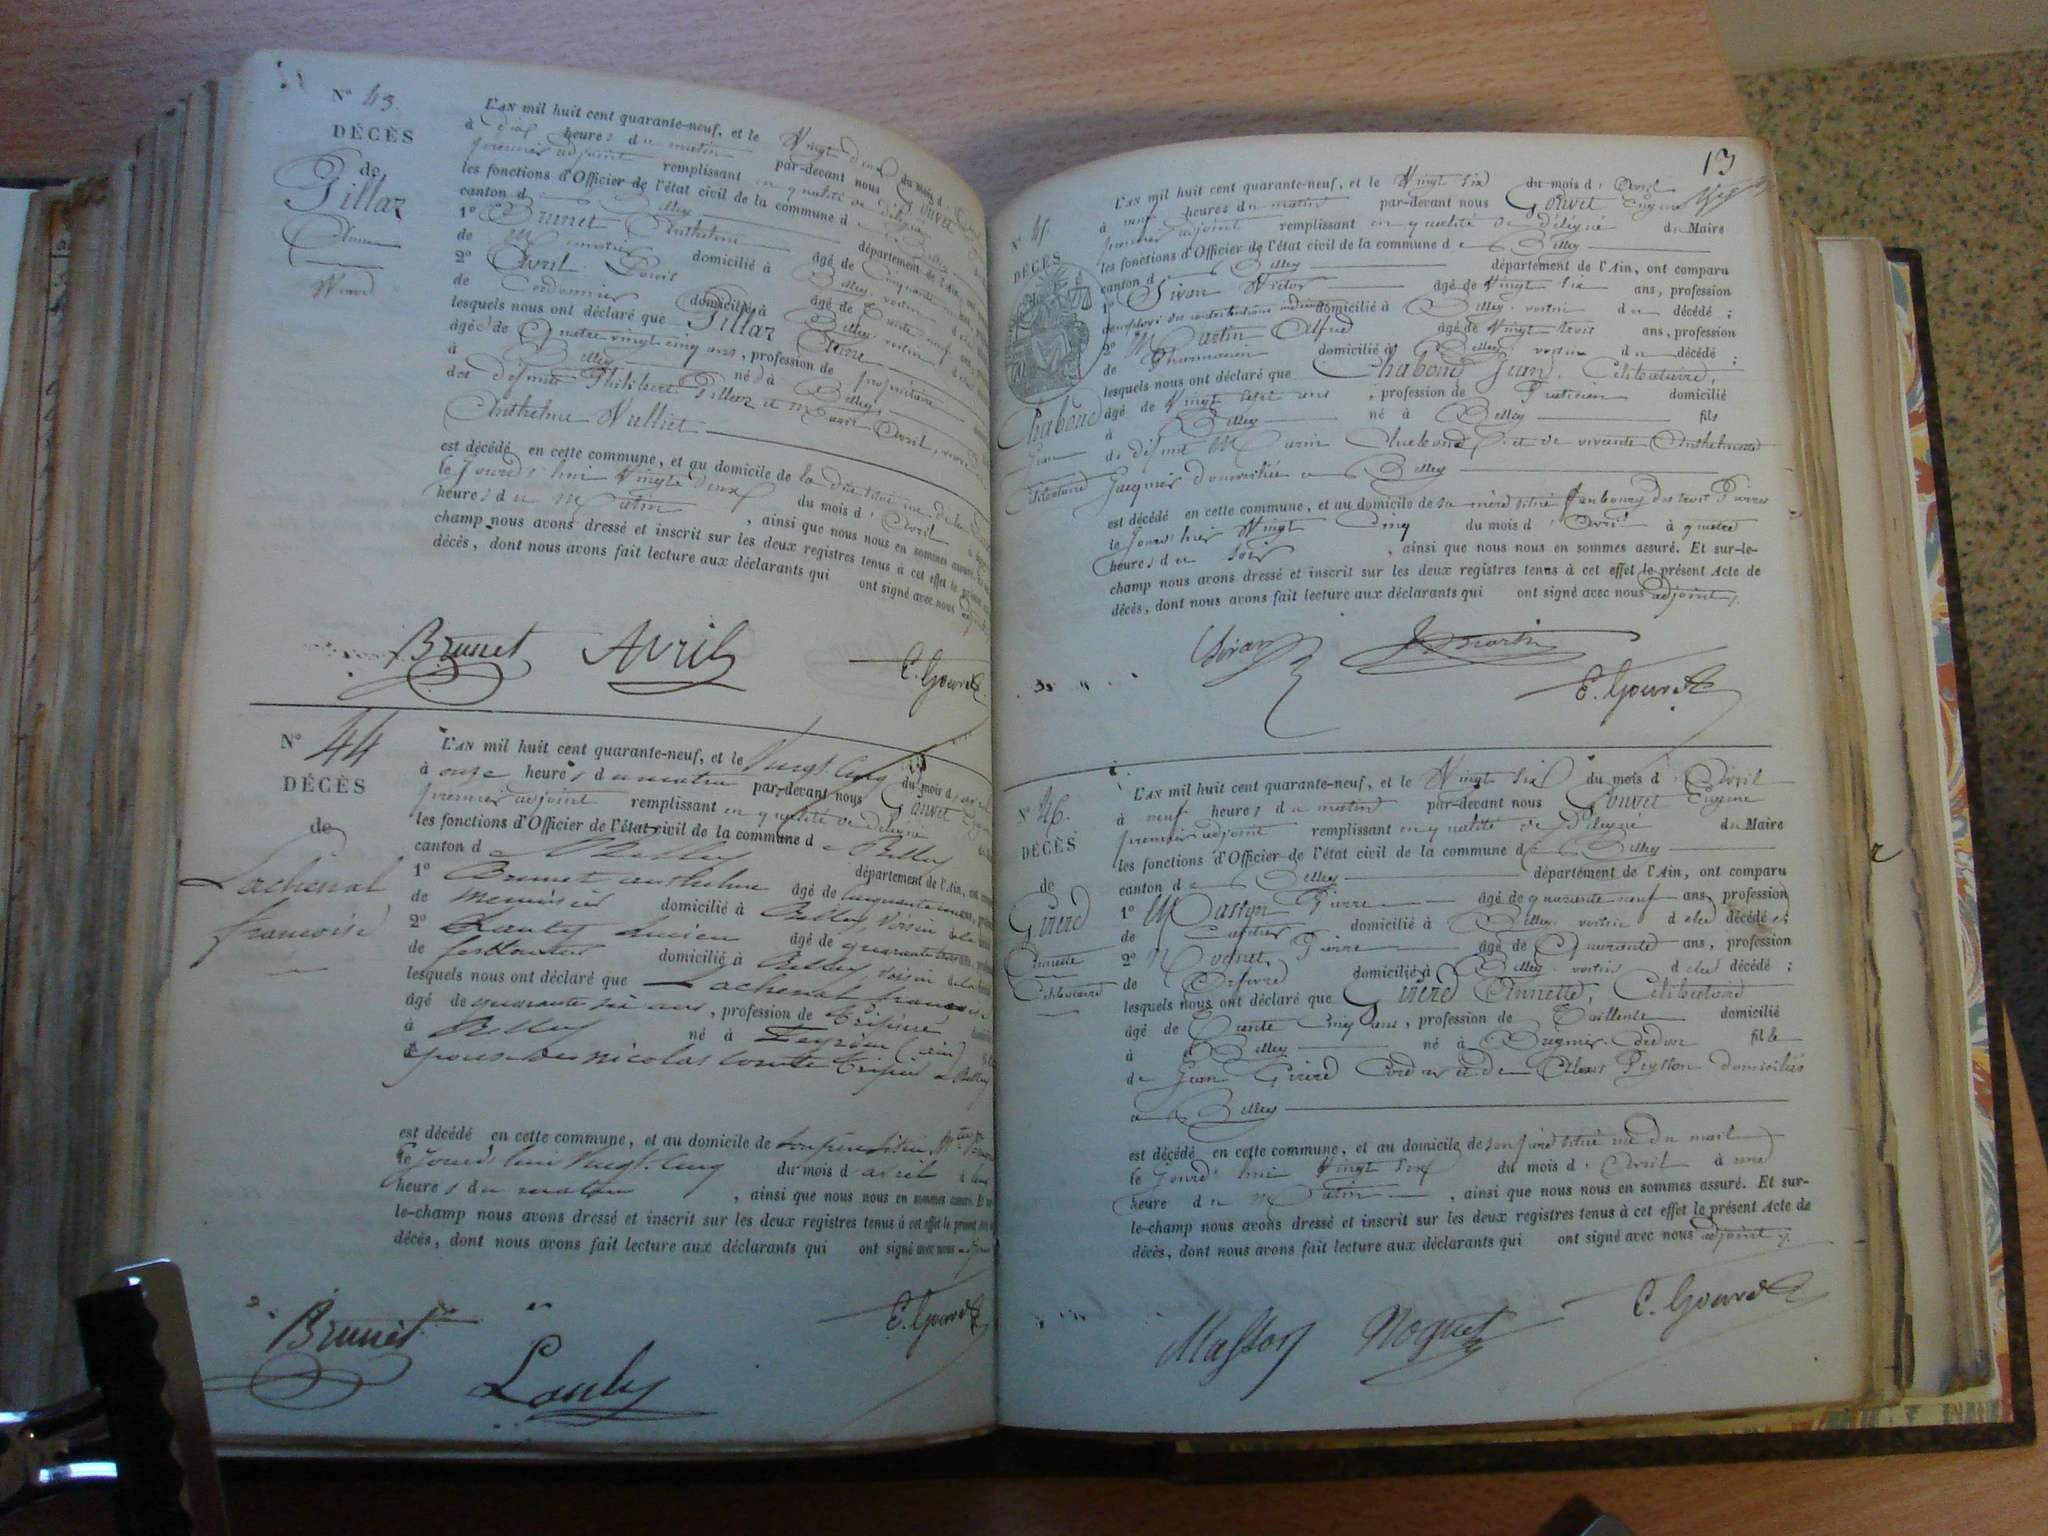 N° 43.
DÉCÈS
de
Pillaz
Veuve
L'AN mil huit cent quarante-neuf, et le Vingt deux du mois d'
à dix heures du matin par-devant nous Gouvet
premier adjoint remplissant en qualité de délégué
les fonctions d'Officier de l'état civil de la commune de Belley
canton de Belley département de l'Ain,
1° Brunet Anthelme âgé de Cinquante
de Menuisier domicilié à Belley, voisin
2° Avril Louis âgé de Trente neuf
de Cordonnier domicilié à Belley, voisin
lesquels nous ont déclaré que Pillaz
âgée de Quatre vingt cinq ans, profession de propriétaire
à Belley née à Belley,
de défunts Philibert Pillaz et Marie Avril, veuve
Anthelme Vulliet
est décédé en cette commune, et au domicile de
le Jourd'hui Vingt deux du mois d'Avril à
heures du Matin, ainsi que nous nous en sommes assuré.
champ nous avons dressé et inscrit sur les deux registres tenus à cet effet le présent
décès, dont nous avons fait lecture aux déclarants qui ont signé avec nous
Brunet Avril E. Gouvet
N° 44
DÉCÈS
de
Lachenal
françoise
L'AN mil huit cent quarante-neuf, et le Vingt-Cinq du mois d'avril
à onze heures du matin par-devant nous Gouvet
premier adjoint remplissant en qualité de délégué
les fonctions d'Officier de l'état civil de la commune de Belley
canton de Belley département de l'Ain,
1° Brunet anthelme âgé de Cinquante
de menuisier domicilié à Belley, Voisin de la
2° Lauly Lucien âgé de quarante
de domicilié à Belley, Voisin de la
lesquels nous ont déclaré que Lachenal françoise
âgé de quarante six ans, profession de tripière
à Belley né à (ain)
épouse de nicolas Comte tripier a Belley
est décédé en cette commune, et au domicile de
le Jourd'hui Vingt-Cinq du mois d'avril à
heures du matin, ainsi que nous nous en sommes assuré. Et
le-champ nous avons dressé et inscrit sur les deux registres tenus à cet effet le présent
décès, dont nous avons fait lecture aux déclarants qui ont signé avec nous
Brunet Lauly E. Gouvet
13
N° 45.
DÉCÈS
Chaboud
Jean
Célibataire
L'AN mil huit cent quarante-neuf, et le Vingt six du mois d'Avril
à neuf heures du matin par-devant nous Gouvet Eugène
premier adjoint remplissant en qualité de délégué du Maire
les fonctions d'Officier de l'état civil de la commune de Belley
canton de Belley département de l'Ain, ont comparu
1° Sivan Victor âgé de Vingt six ans, profession
d'employé des contributions indirectes domicilié à Belley, voisin du décédé ;
2° Martin Alfred âgé de Vingt trois ans, profession
de Pharmacien domicilié à Belley, voisin du décédé ;
lesquels nous ont déclaré que Chaboud Jean, Célibataire,
âgé de Vingt sept ans, profession de Praticien domicilié
à Belley né à Belley fils
de défunt Marin Chaboud et de vivante Anthelmette
Jacquier domiciliée à Belley
est décédé en cette commune, et au domicile de sa mère situé faubourg des trois Pierres
le Jour d'hier Vingt Cinq du mois d'Avril à quatre
heures du Soir, ainsi que nous nous en sommes assuré. Et sur-le-
champ nous avons dressé et inscrit sur les deux registres tenus à cet effet le présent Acte de
décès, dont nous avons fait lecture aux déclarants qui ont signé avec nous adjoint
Martin
E. Gouvet
N° 46.
DÉCÈS
de
Girerd
Annette
Célibataire
L'AN mil huit cent quarante-neuf, et le Vingt Six du mois d'Avril
à neuf heures du matin par-devant nous Gouvet Eugène
premier adjoint remplissant en qualité de Délégué du Maire
les fonctions d'Officier de l'état civil de la commune de Belley
canton de Belley département de l'Ain, ont comparu
1° Masson Pierre âgé de quarante neuf ans, profession
de domicilié à Belley, voisin de la décédée ;
2° Noguet Pierre âgé de Quarante ans, profession
de Orfèvre domicilié à Belley, voisin de la décédé ;
lesquels nous ont déclaré que Girerd Annette, Célibataire
âgé de Trente Cinq ans, profession de Tailleuse domicilié
à Belley né à Brégnier-Cordon fille
de Jean Girerd et de Peysson domiciliés
à Belley
est décédé en cette commune, et au domicile de son père situé rue du mail
le Jourd'hui Vingt Six du mois d'Avril à une
heure du Matin, ainsi que nous nous en sommes assuré. Et sur-
le-champ nous avons dressé et inscrit sur les deux registres tenus à cet effet le présent Acte de
décès, dont nous avons fait lecture aux déclarants qui ont signé avec nous adjoint
Masson Noguet E. Gouvet